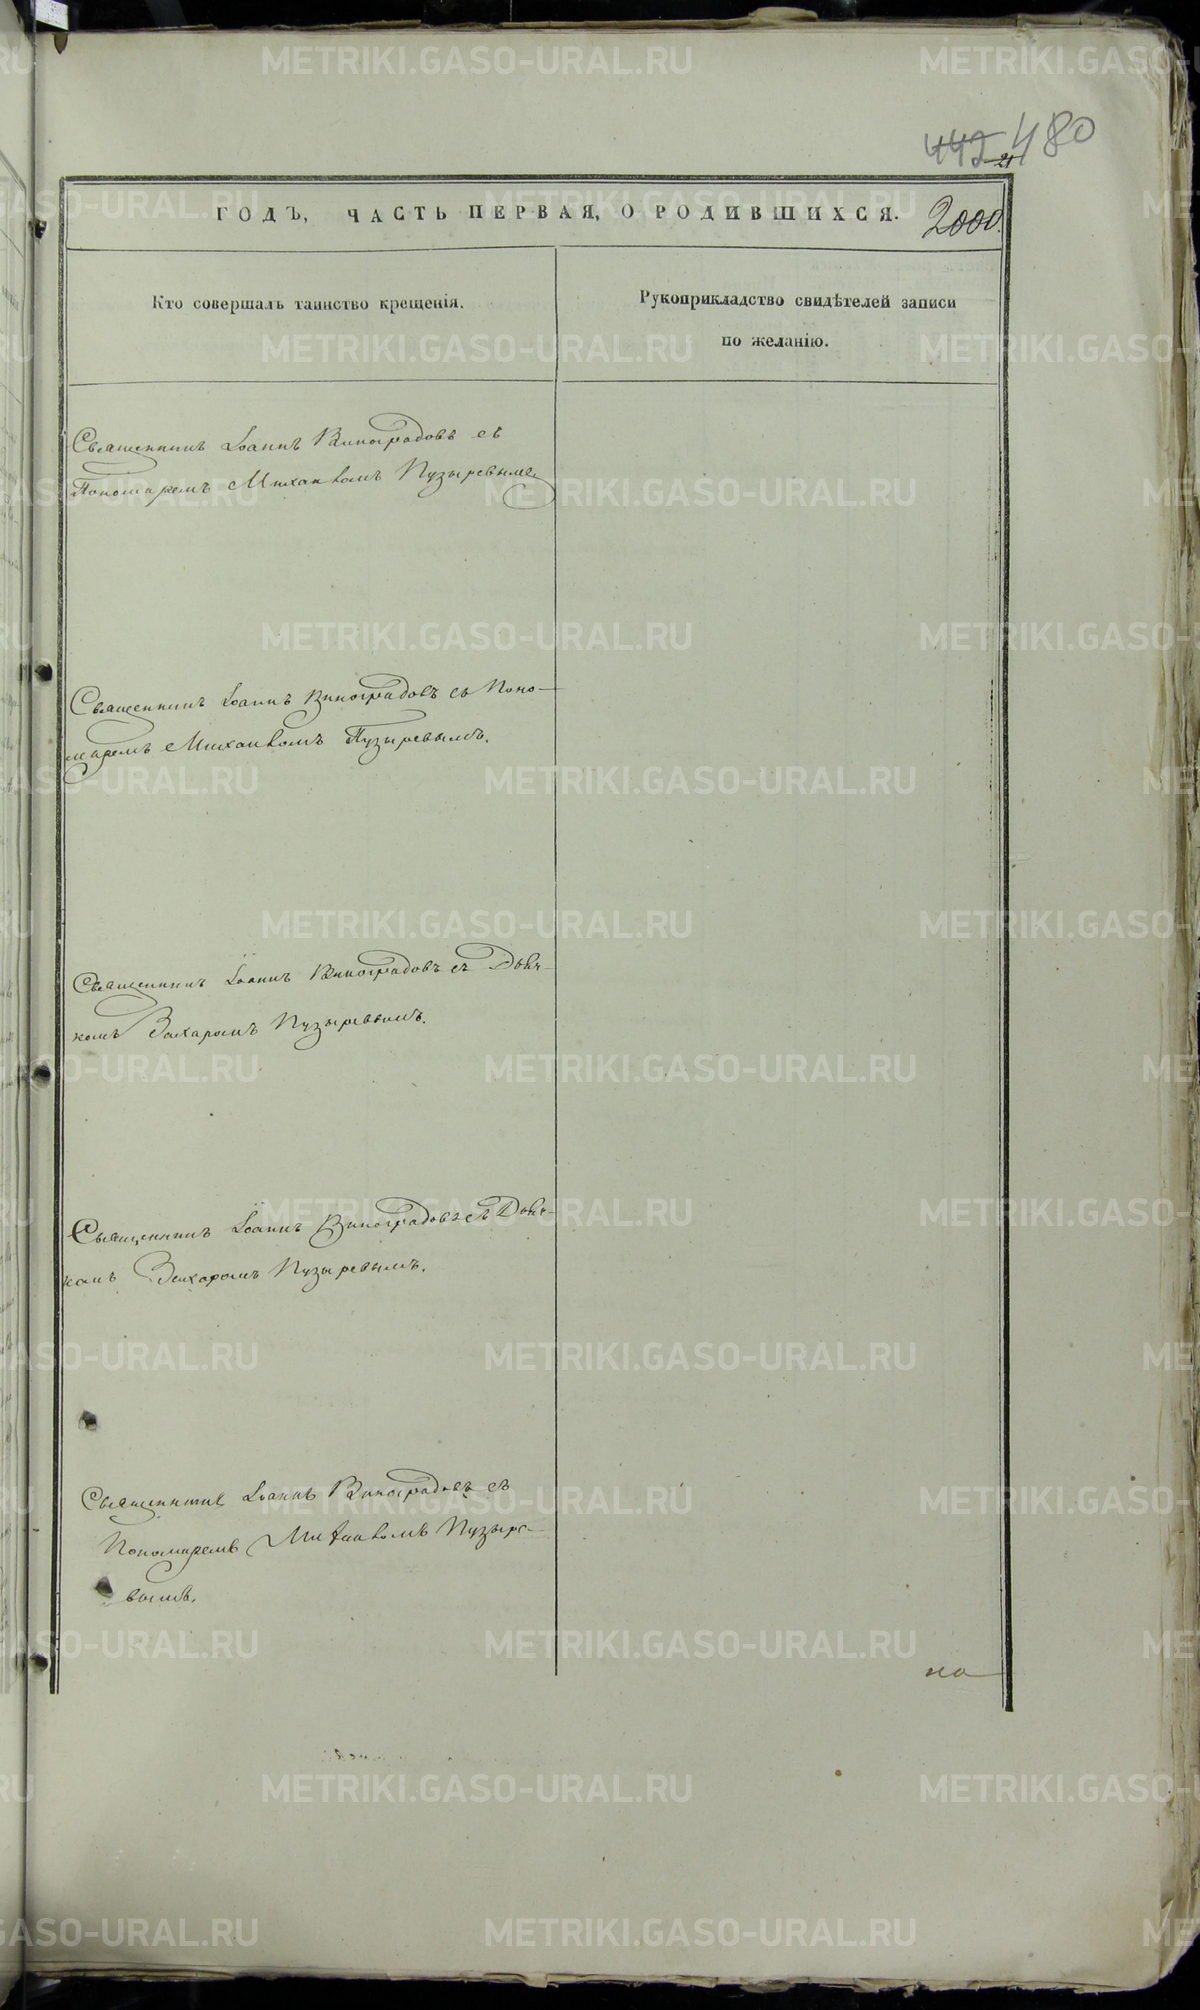 442 480
21
ГОДЪ, ЧАСТЬ ПЕРВАЯ, О РОДИВШИХСЯ. 2000.
Кто совершалъ таинство крещенія.
Рукоприкладство свидѣтелей записи
по желанію.
Священникъ Іоаннъ Виноградовъ съ
Пономаремъ Михаиломъ Пузыревымъ.
Священникъ Іоаннъ Виноградовъ съ Поно-
маремъ Михаиломъ Пузыревымъ.
Священникъ Іоаннъ Виноградовъ съ Дьяч-
комъ Захаромъ Пузыревымъ.
Священникъ Іоаннъ Виноградовъ съ Дьяч-
комъ Захаромъ Пузыревымъ.
Священникъ Іоаннъ Виноградовъ съ
Пономаремъ Михаиломъ Пузыре-
вымъ.
на
METRIKI.GASO-URAL.RU